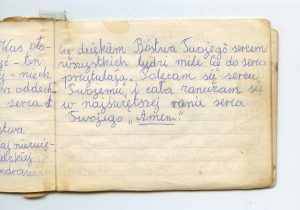 Was oto-
yć - ten
y - niech
m oddech
serca st
stwa
aj niezwię-
dzkiej
dzięki Bóstwa Twojego sercem
wszystkich ludzi mile Cię do serca
przytulają. Polecam się sercu
Twojemu, i cała zanurzam się
w najświętszej ranie serca
Twojego „Amen."